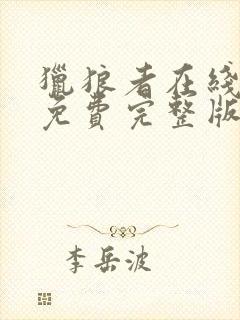 獵狼者在綫
免費完整版
李岳波